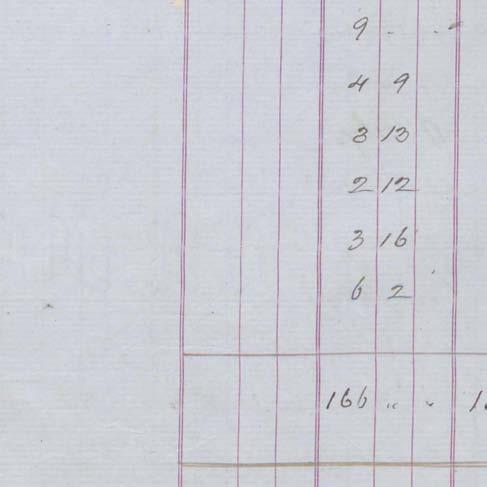 9 . . "
4 9
3 13
2 12
3 16
6 2
166 " "